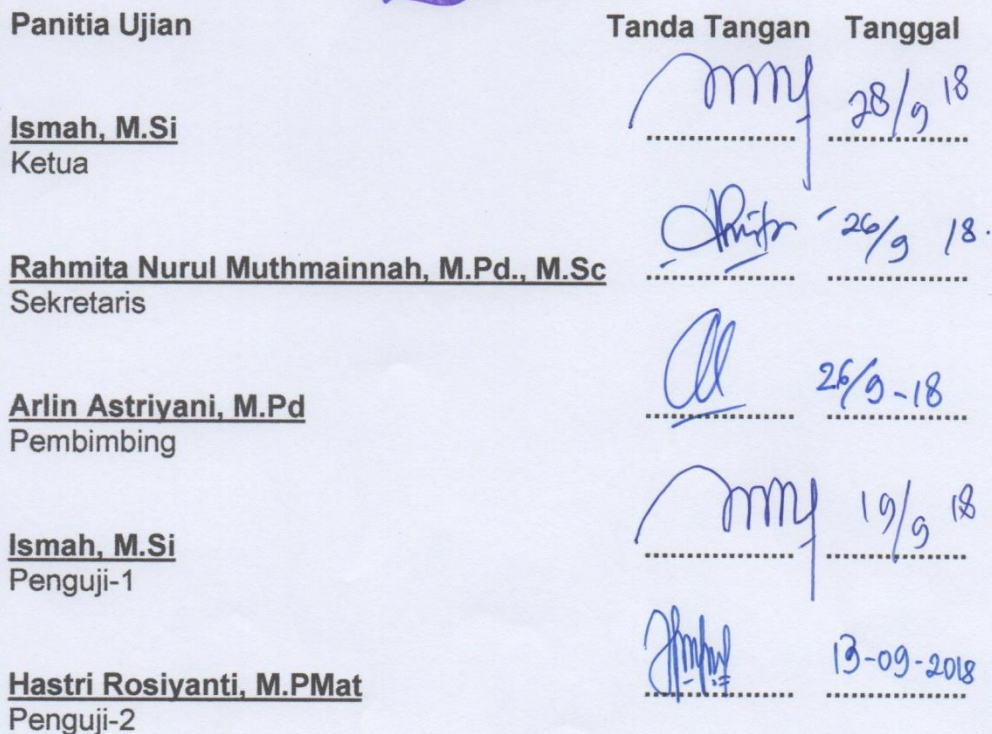 Panitia Ujian Tanda Tangan Tanggal
28/9 18
Ismah, M.Si ....................
Ketua
26/9 18.
Rahmita Nurul Muthmainnah, M.Pd., M.Sc ....................
Sekretaris
26/9-18
Arlin Astriyani, M.Pd ....................
Pembimbing
19/9 18
Ismah, M.Si ....................
Penguji-1
13-09-2018
Hastri Rosiyanti, M.PMat ....................
Penguji-2